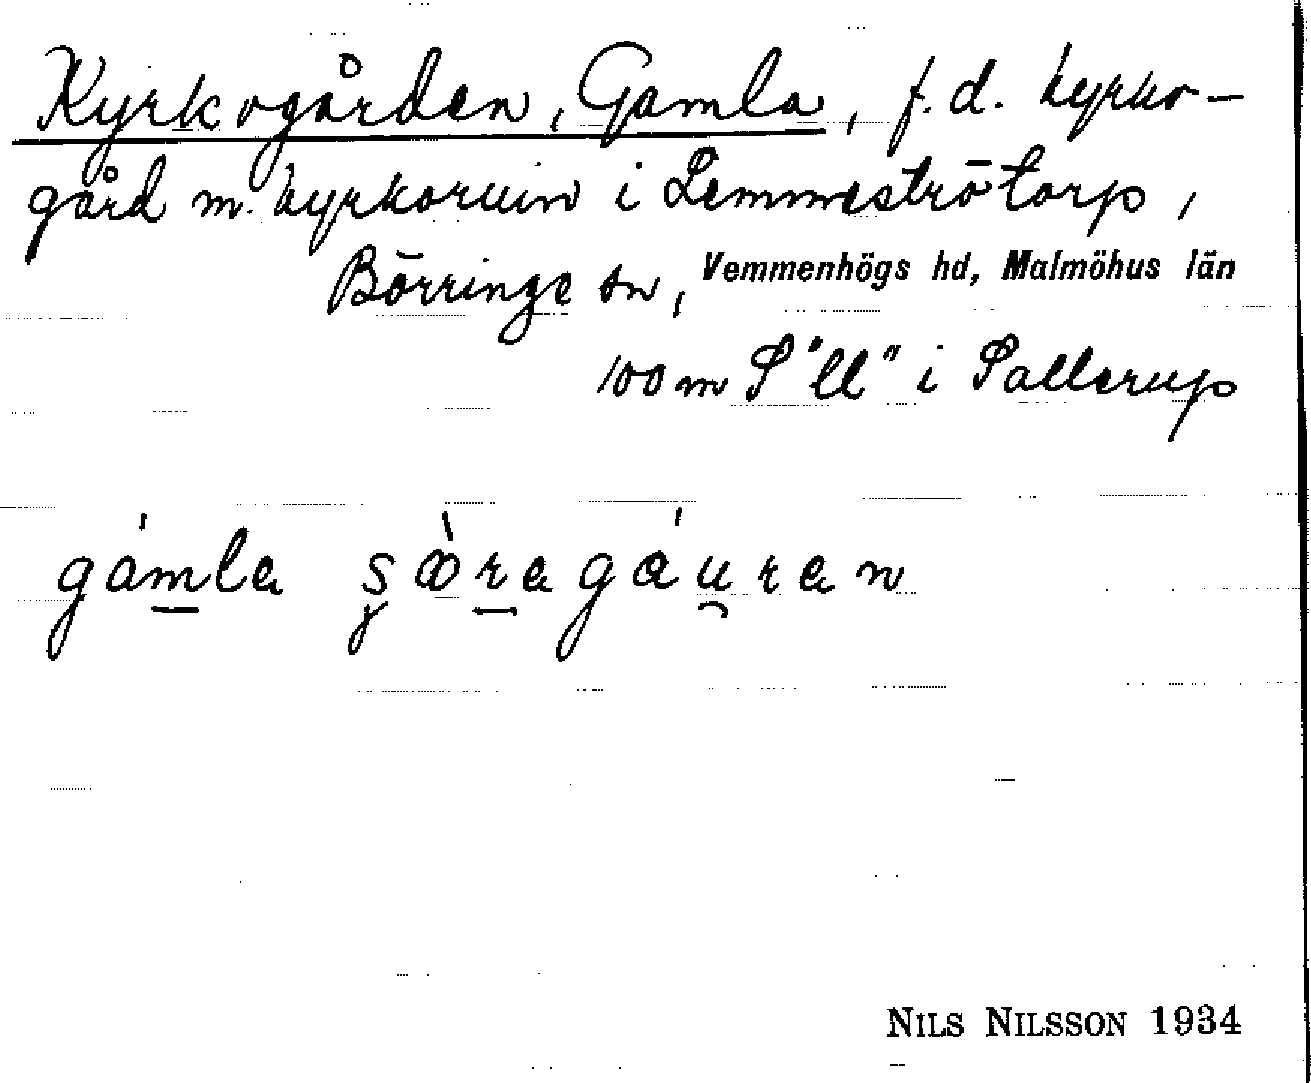 Kyrkogården, Gamla, f.d. kyrko-
gård m. kyrkoruin i Lemmeströtorp,
Börringe sn, Vemmenhögs hd, Malmöhus län
100 m S "ll" i Sallerup
gámla
NILS NILSSON 1934